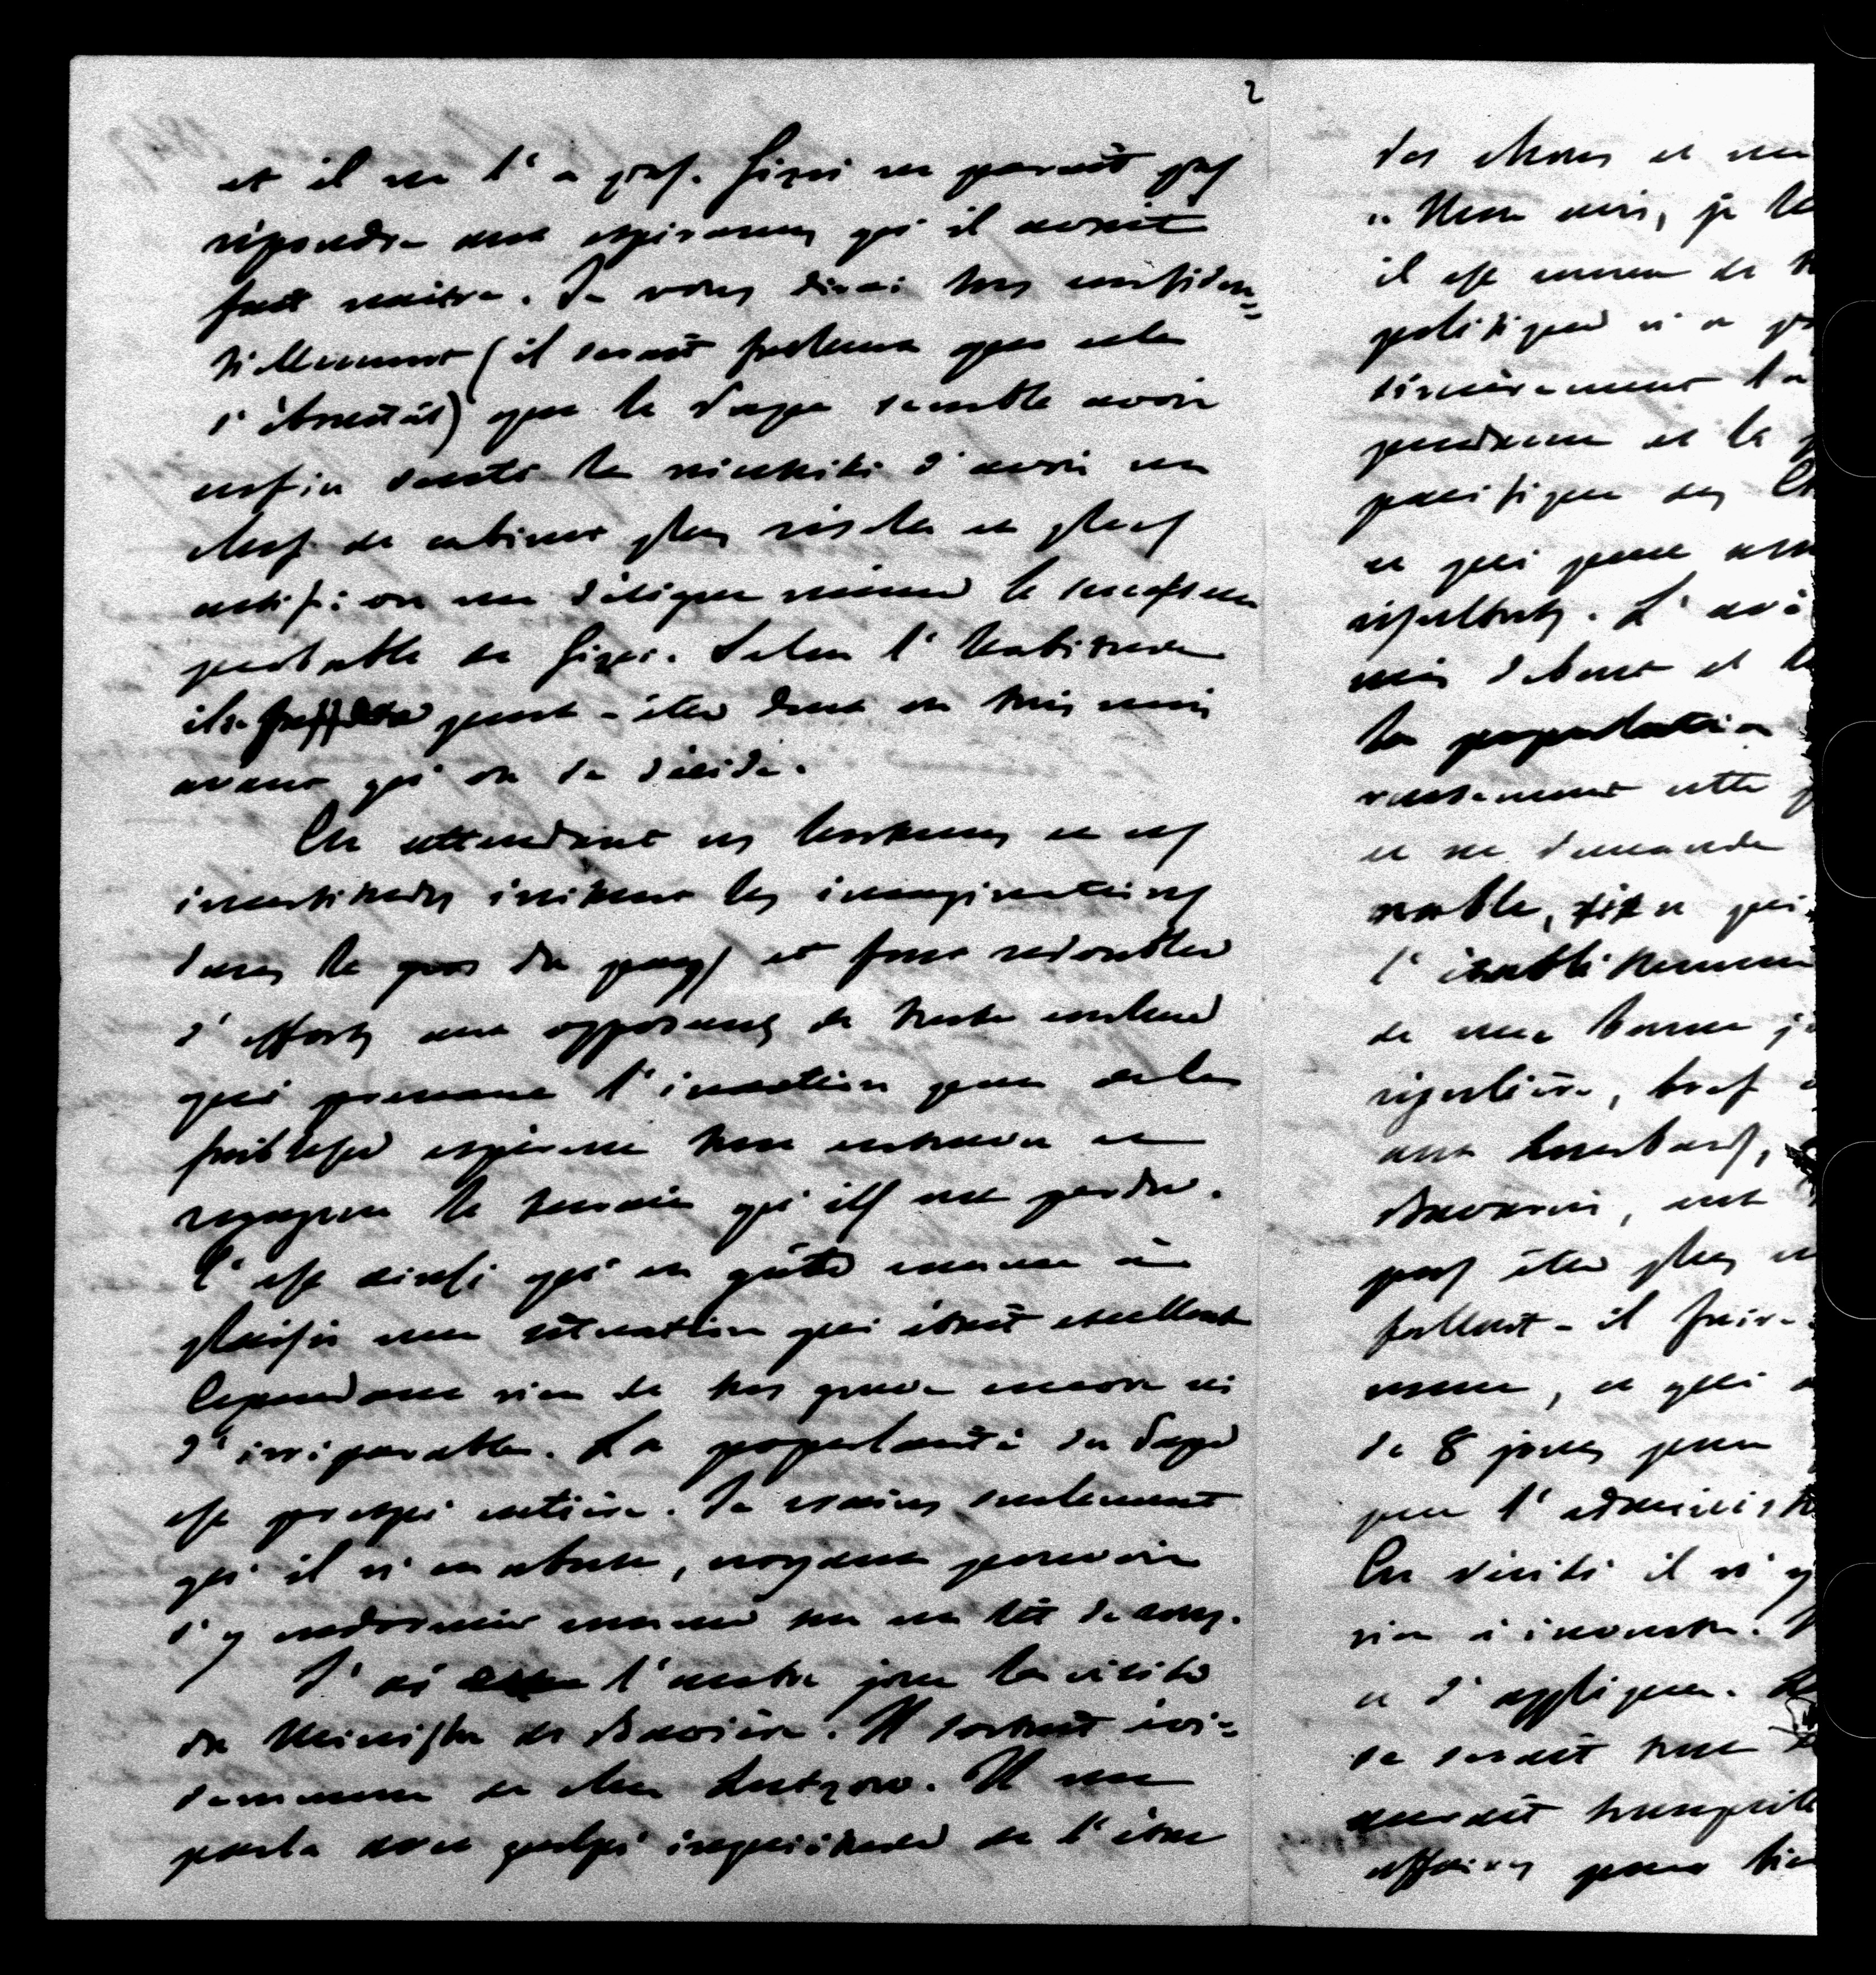 2
et il ne l'a pas. Gizzi ne parait pas
répondre aux espérances qu'il avait
fait naitre. Je vous dirai très confiden=
tiellement (il serait facheux que cela
s'ébruitât) que le Pape semble avoir
enfin senti la nécessité d'avoir un
chef de cabinet plus résolu et plus
actif; on me désigne même le successeur
probable de Gizzi. Selon l'habitude
il se passera peut-être deux ou trois mois
avant qu'on se décide.
En attendant ces lenteurs et ces
incertitudes irritent les imaginations
dans le gros du pays et font redoubler
d'efforts aux opposans de toute couleur
qui prenant l'inaction pour de la
faiblesse espèrent tous entraver et
regagner le terrain qu'ils ont perdu.
C'est ainsi qu'on gâte comme à
plaisir une situation qui était excellente
Cependant rien de très grave encore ni
d'irréparable. La popularité du Pape
est presque entière. Je crains seulement
qu'il n'en abuse, croyant pouvoir
s'y endormir comme sur un lit de roses.
J'ai l'autre jour la visite
du Ministre de Bavière. Il sortait évi=
demment de chez Lutzow. Il me
parla avec quelque inquiétude de l'état
des choses et
" Mon avis, je
il est comme de
politique n'a
sincèrement
et la
pacifique des
et qui peut
résultats. L'
mis debout et
la population
cette
et ne demande
qui
l'établissement
de une bonne
régulière, bref
aux Lombards,
Bavarois,
pas être plus
fallait-il faire
et qui
de 8 jours pour
pour l'administ
En vérité il n'y
rien à inventer.
et d'appliquer.
se serait
aurait tranquille
affaires pour